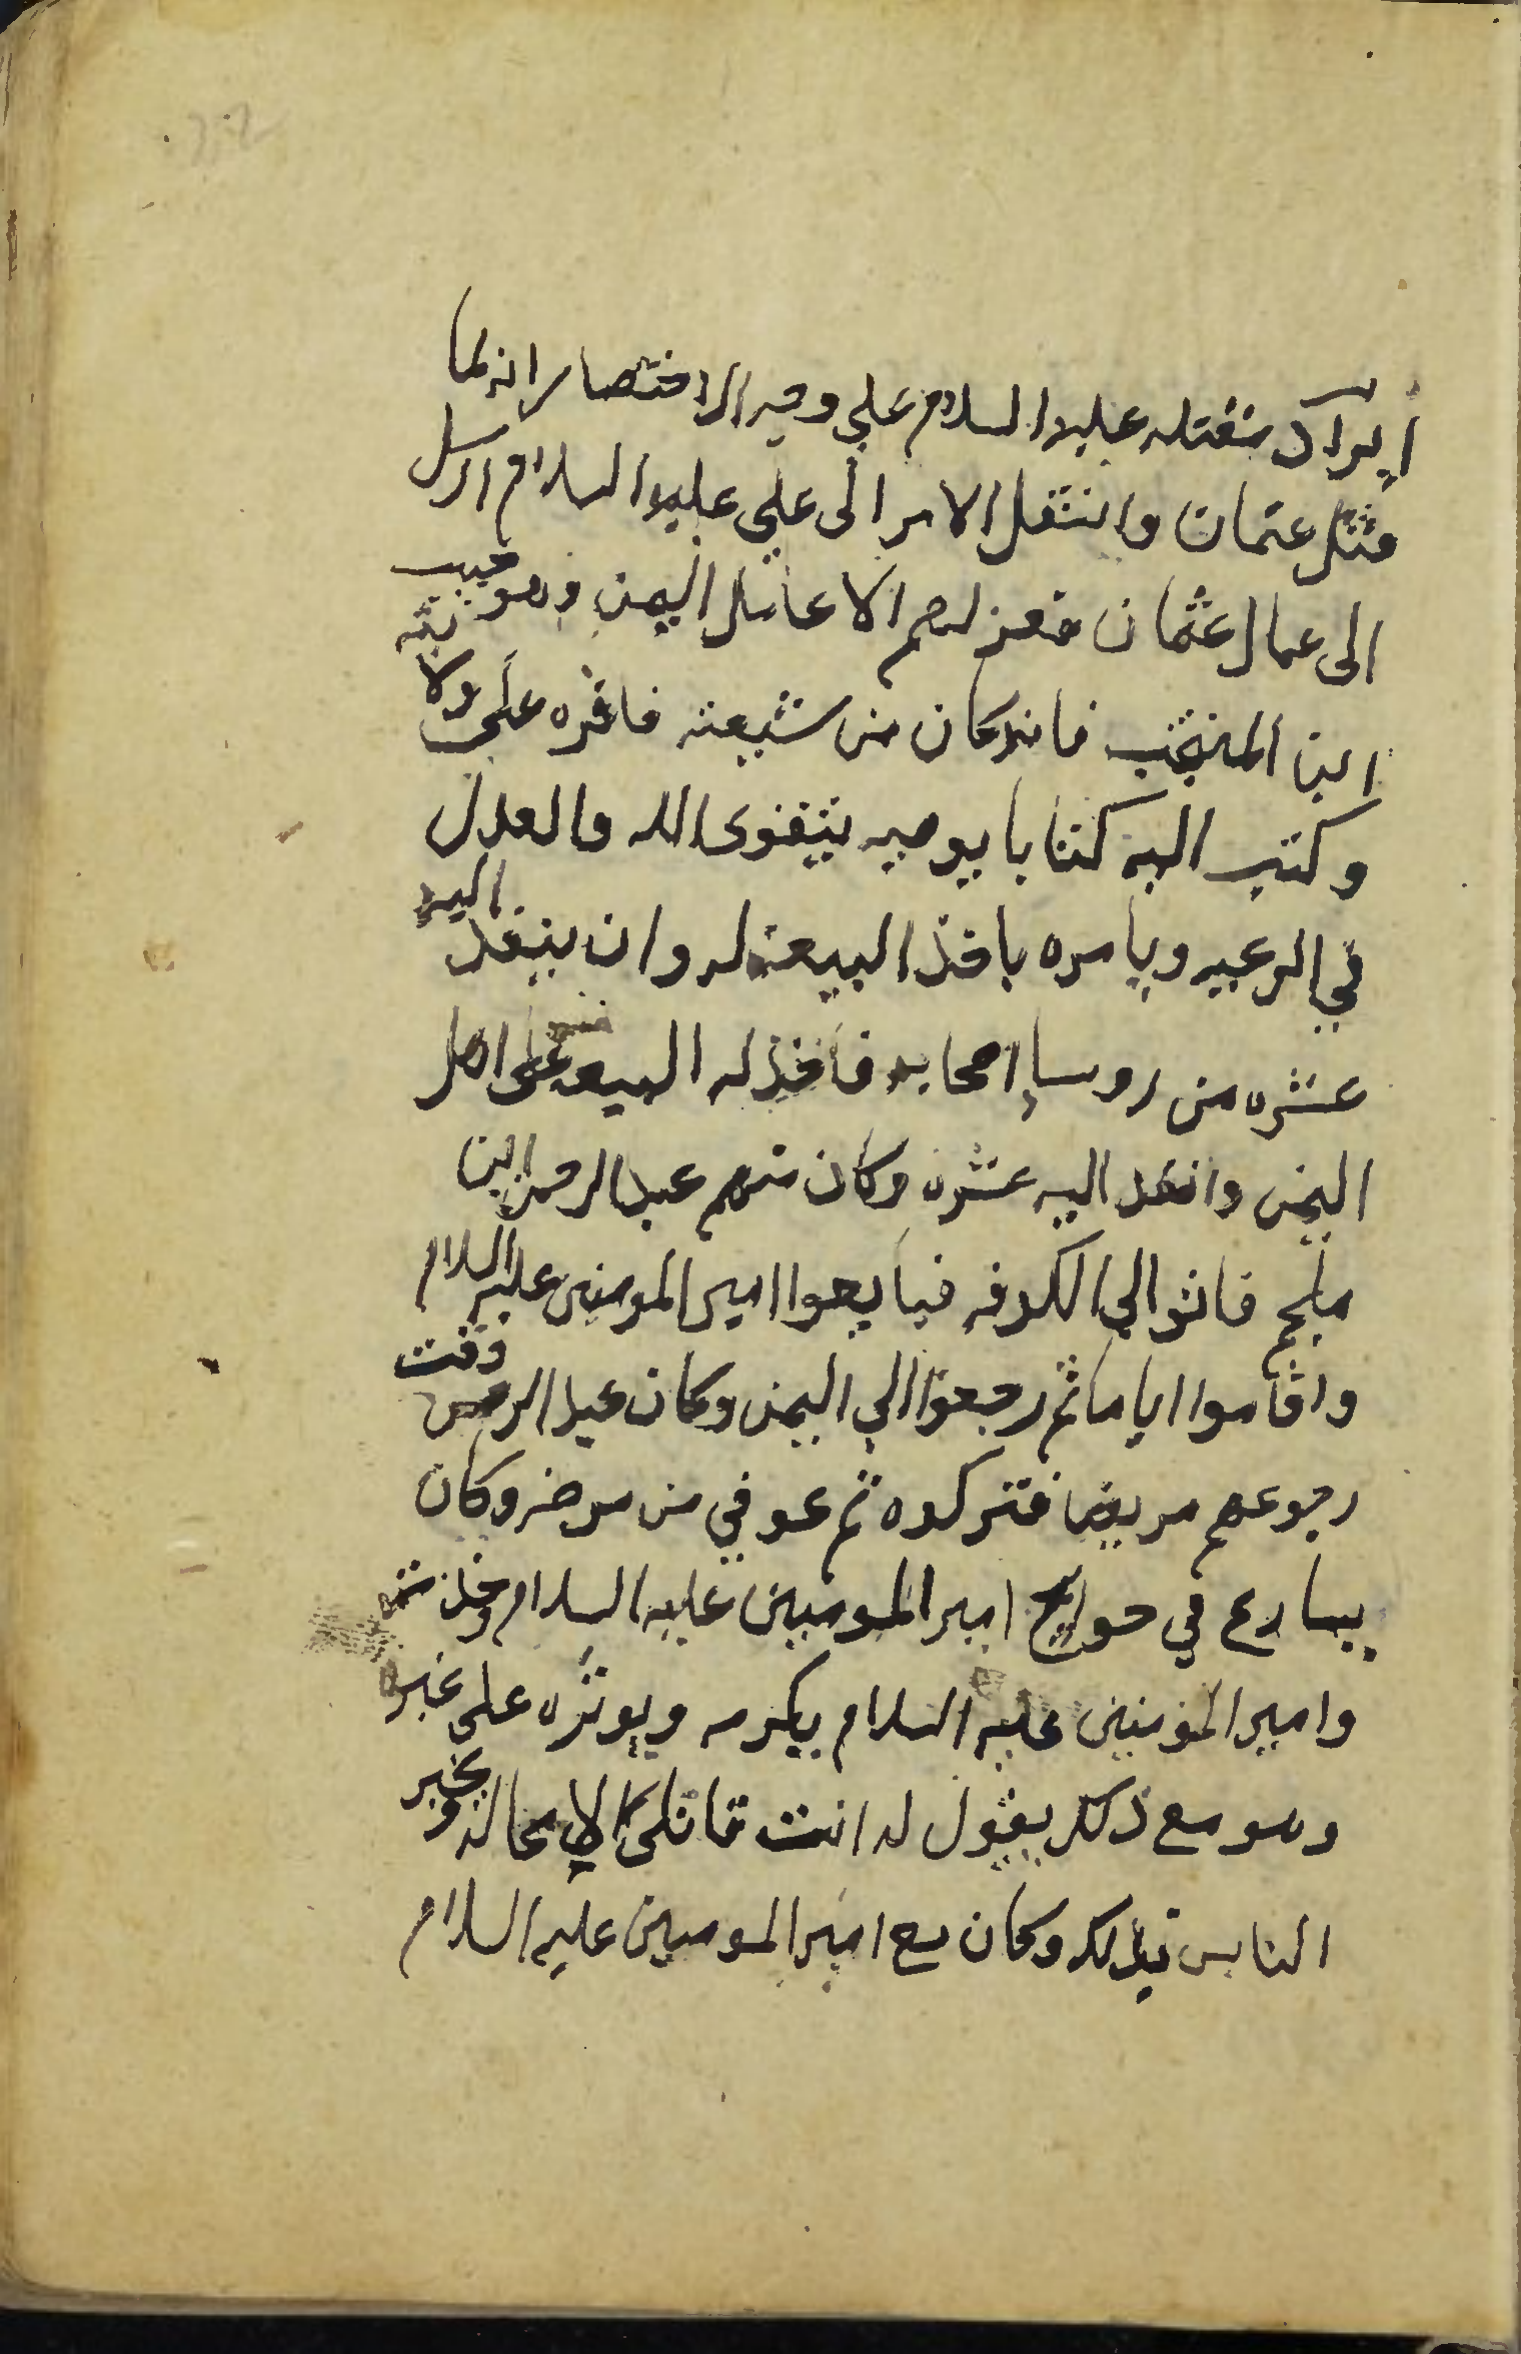 ايراد مقتله عليه السلام على وجه الاختصار انه لما
قتل عثمان وانتقل الامر الى علي عليه السلام ارسل
الى عمال عثمان فعزلهم الا عامل اليمن وهو حبيب
ابن المنتجب فانه كان من شيعته فاقره على ولايته
وكتب اليه كتابا يوصيه بتقوى الله والعدل
في الرعيه ويامره باخذ البيعة له وان ينفذ اليه
عشره من روسا اصحابه فاخذ له البيعه على اهل
اليمن وانفذ اليه عشره وكان منهم عبد الرحمن ابن
ملجم فاتوا الى الكوفه فبايعوا امير المومنين عليه السلام
واقاموا اياما ثم رجعوا الى اليمن وكان عبد الرحمن وقت
رجوعهم مريضا فتركوه ثم عوفي من مرضه وكان
يسارع في حوايج امير المومنين عليه السلام وخدمته
وامير المؤمنين عليه السلام يكرمه ويوثره على غيره
وهو مع ذلك يقول له انت قاتلي لا محاله ويخبر
الناس بذلك وكان مع امير المومنين عليه السلام